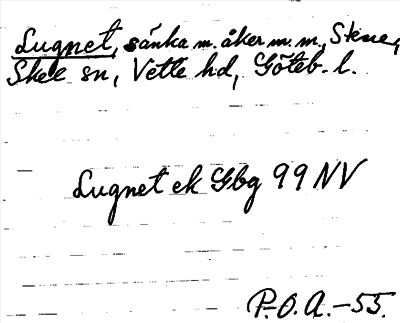 Lugnet, sänka m. åker m. m., Stene,
Skee sn, Vette hd, Göteb. l.
Lugnet ek Gbg 99 NV
P.O.A.-55.